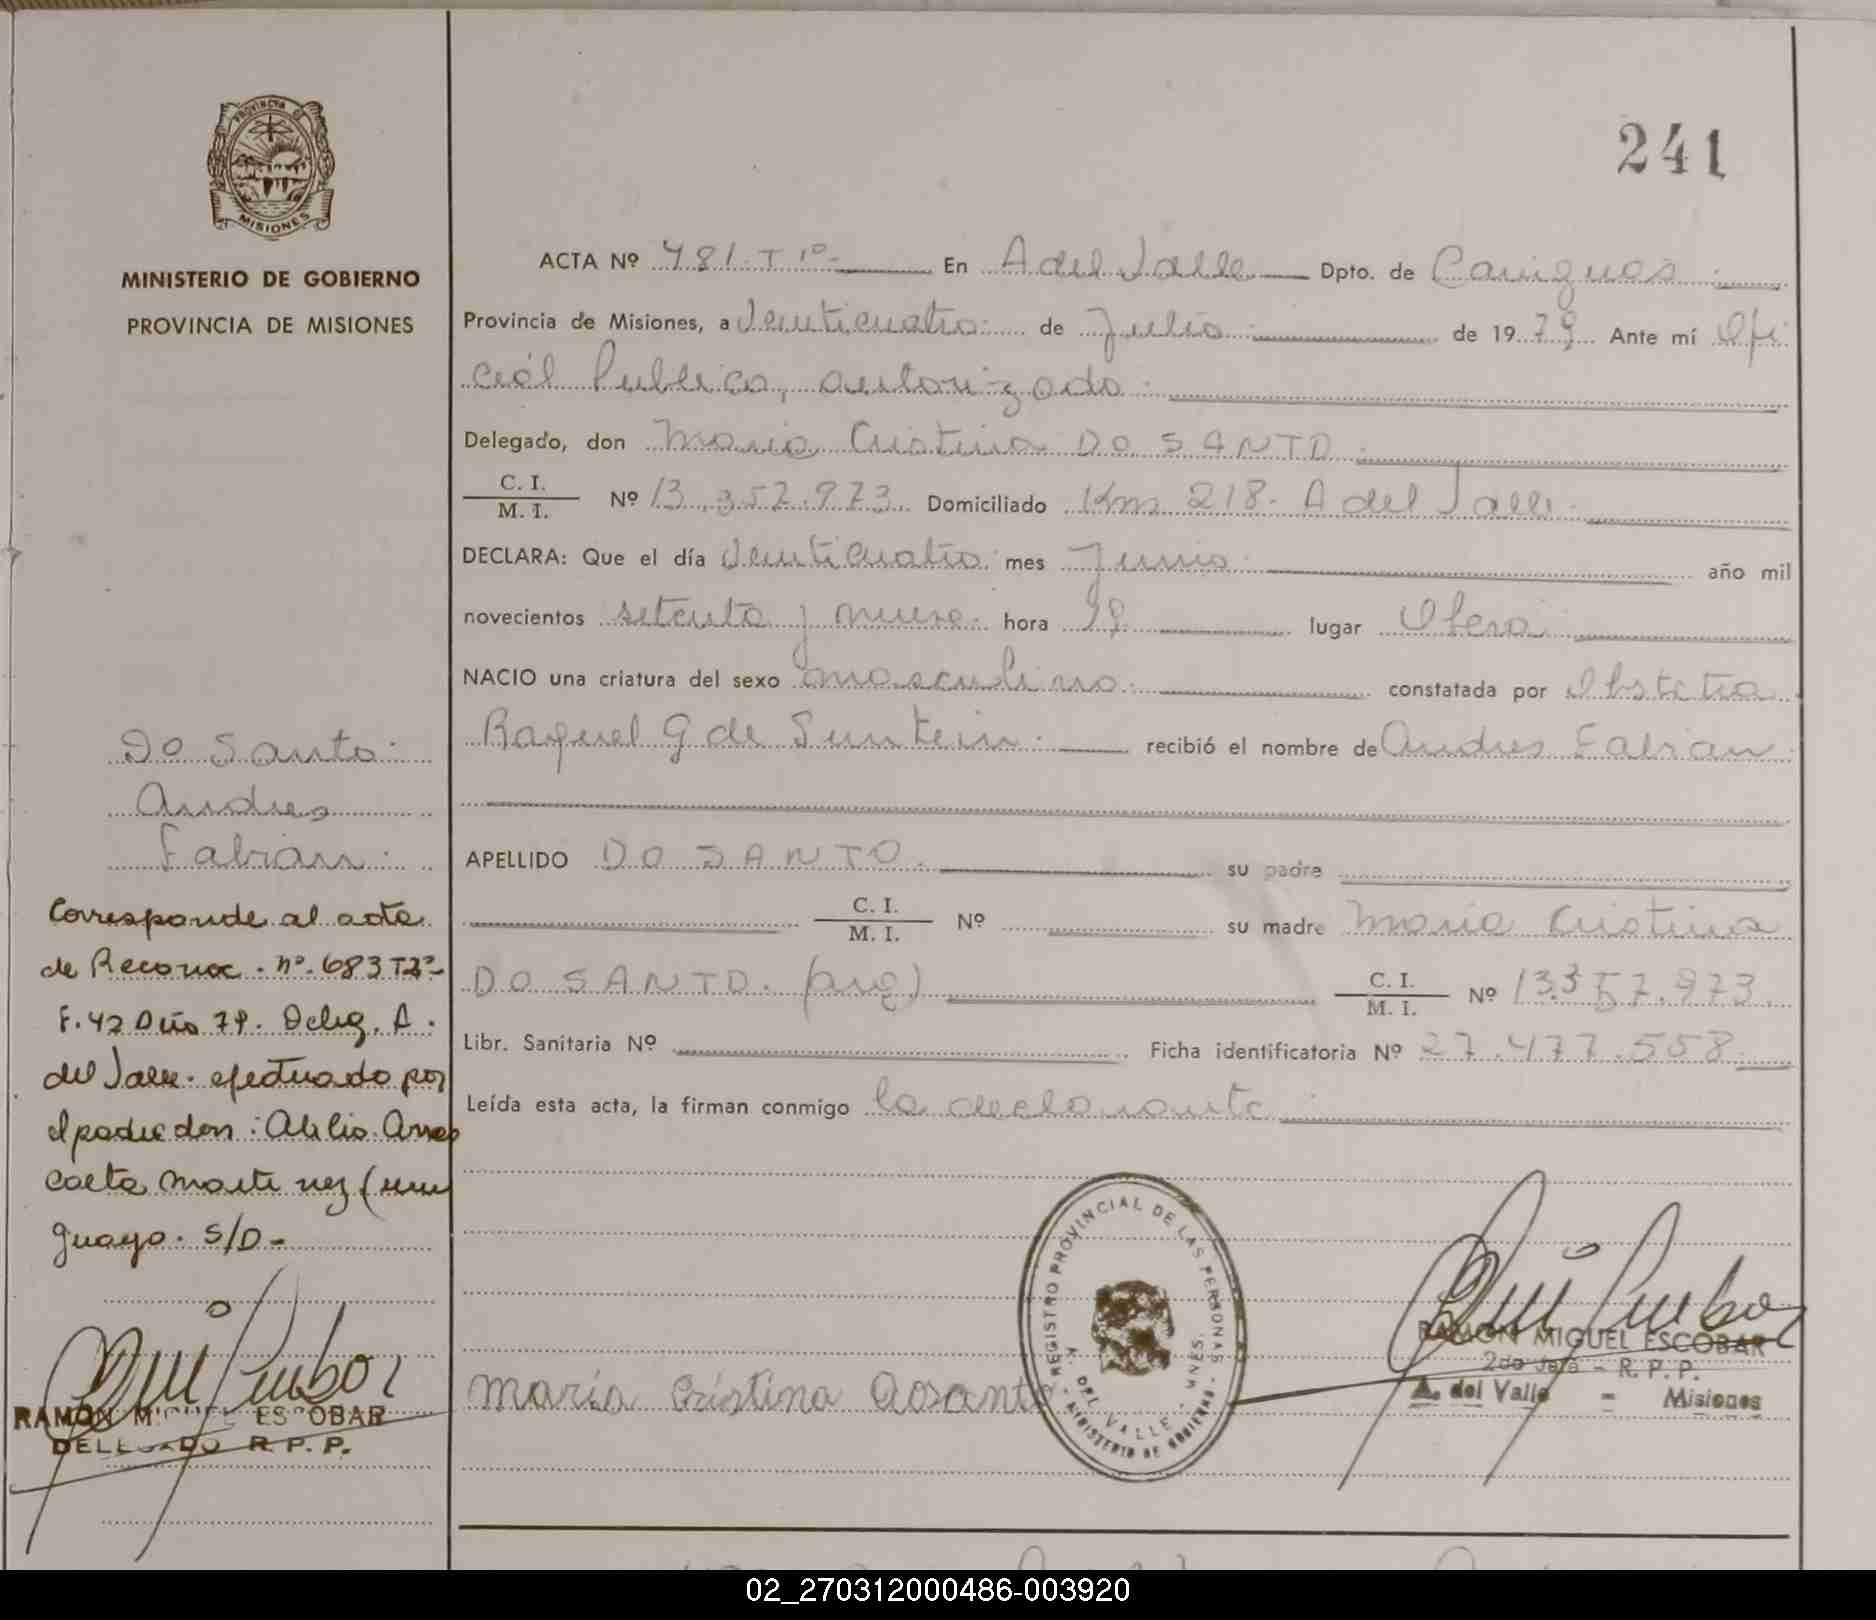 PROVINCIA DE
MISIONES
MINISTERIO DE GOBIERNO
PROVINCIA DE MISIONES
241
ACTA Nº 481. T 1º- En A del Valle Dpto. de Cainguas
Provincia de Misiones, a Veinticuatro de Julio de 19 79 Ante mí Ofi
cial Publico, autorizado
Delegado, don Maria Cristina DO SANTO
C. I.
M. I.
Nº 13.357.973 Domiciliado Km 218. A del Valle
DECLARA: Que el día Veinticuatro mes Junio año mil
novecientos setenta y nueve hora lugar Obera
NACIO una criatura del sexo masculino constatada por Obstetra
Raquel G de recibió el nombre de Andres Fabian
APELLIDO DO SANTO su padre
C. I.
M. I.
Nº su madre Maria Cristina
DO SANTO. (arg) C. I.
M. I.
Nº 13.357.973
Libr. Sanitaria Nº Ficha identificatoria Nº 27.477.558
Leída esta acta, la firman conmigo la declarante
Do Santo
Andres
Fabian
Corresponde al acta
de Reconoc. nº. 683 T2º-
F. 42 Año 79. Deleg. A.
del Valle. efectuado por
el padre don: Atilio
Martinez (uru
guayo. S/D-
RAMON MIGUEL ESCOBAR
DELEGADO R. P. P.
María Cristina dosanto
REGISTRO PROVINCIAL DE LAS PERSONAS
A. DEL VALLE - MNES.
MINISTERIO DE GOBIERNO
RAMON MIGUEL ESCOBAR
2do Jefe - R. P. P.
A. del Valle = Misiones
02_270312000486-003920